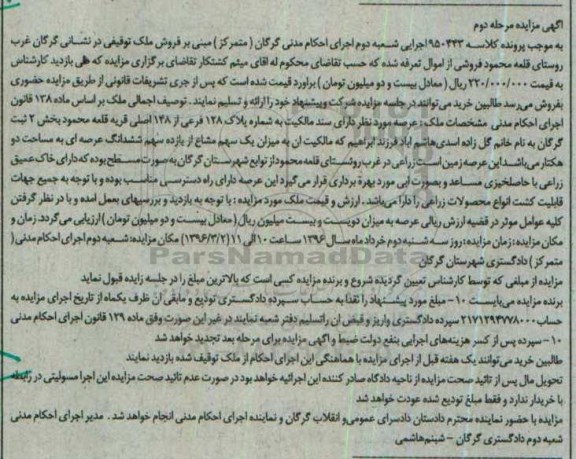 آگهی مزایده مرحله دوم
به موجب پرونده کلاسه ۹۵۰۴۴۳ اجرایی شعبه دوم اجرای احکام مدنی گرگان ( متمرکز ) مبنی بر فروش ملک توقیفی در نشانی گرگان غرب
روستای قلعه محمود فروشی از اموال تعرفه شده که حسب تقاضای محکوم له اقای میثم کشتکار تقاضای برگزاری مزایده که طی بازدید کارشناس
به قیمت ۲۲۰/۰۰۰/۰۰۰ ریال ( معادل بیست و دو میلیون تومان ) براورد قیمت شده است که پس از جری تشریفات قانونی از طریق مزایده حضوری
بفروش می‌رسد طالبین خرید می‌توانند در جلسه مزایده شرکت و پیشنهاد خود را ارائه و تسلیم نمایند . توصیف اجمالی ملک بر اساس ماده ۱۳۸ قانون
اجرای احکام مدنی مشخصات ملک : عرصه مورد نظر دارای سند مالکیت به شماره پلاک ۱۲۸ فرعی از ۱۴۸ اصلی قریه قلعه محمود بخش ۲ ثبت
گرگان به نام خانم گل زاده اسدی هاشم اباد فرزند ابراهیم که مالکیت ان به میزان یک سهم مشاع از یازده سهم ششدانگ عرصه ای به مساحت دو
هکتار می‌باشد. این عرصه زمین است زراعی در غرب روستای قلعه محمود از توابع شهرستان گرگان به صورت مسطح بوده که دارای خاک عمیق
زراعی با حاصلخیزی مساعد و بصورت آبی مورد بهره برداری قرار می‌گیرد این عرصه دارای راه دسترسی مناسب بوده و با توجه به جمیع جهات
قابلیت کشت انواع محصولات زراعی را دارا می‌باشد . ارزش و قیمت ملک مورد مزایده : با توجه به بازدید و بررسیهای بعمل امده و با در نظر گرفتن
کلیه عوامل موثر در قضیه ارزش ریالی عرصه به میزان دویست و بیست میلیون ریال ( معادل بیست و دو میلیون تومان ) ارزیابی می‌گردد. زمان و
مکان مزایده : زمان مزایده : روز سه شنبه دوم خرداد ماه سال ۱۳۹۶ ساعت ۱۰ الی ۱۱ (۱۳۹۶/۳/۲) مکان مزایده : شعبه دوم اجرای احکام مدنی (
متمرکز ) دادگستری شهرستان گرگان
مزایده از مبلغی که توسط کارشناس تعیین گردیده شروع و برنده مزایده کسی است که بالاترین مبلغ را در جلسه زایده قبول نماید
برنده مزایده می‌بایست ۱۰ - مبلغ مورد پیشنهاد را نقدا به حساب سپرده دادگستری تودیع و مابقی ان ظرف یکماه از تاریخ اجرای مزایده به
حساب ۲۱۷۱۲۹۴۷۷۸۰۰۰ سپرده دادگستری واریز و قبض ان را تسلیم دفتر شعبه نمایند در غیر این صورت وفق ماده ۱۲۹ قانون اجرای احکام مدنی
۱۰ - سپرده پس از کسر هزینه‌های اجرایی بنفع دولت ضبط و اگهی مزایده برای مرحله بعد تجدید خواهد شد
طالبین خرید می‌توانند یک هفته قبل از اجرای مزایده با هماهنگی این اجرای احکام از ملک توقیف شده بازدید نمایند
تحویل مال پس از تائید صحت مزایده از ناحیه دادگاه صادر کننده این اجرائیه خواهد بود در صورت عدم تائید صحت مزایده این اجرا مسولیتی در رابطه
با خریدار ندارد و فقط مبلغ تودیع شده عودت خواهد شد
مزایده با حضور نماینده محترم دادستان دادسرای عمومی و انقلاب گرگان و نماینده اجرای احکام مدنی انجام خواهد شد . مدیر اجرای احکام مدنی
شعبه دوم دادگستری گرگان - شبنم هاشمی
ParsNamadData